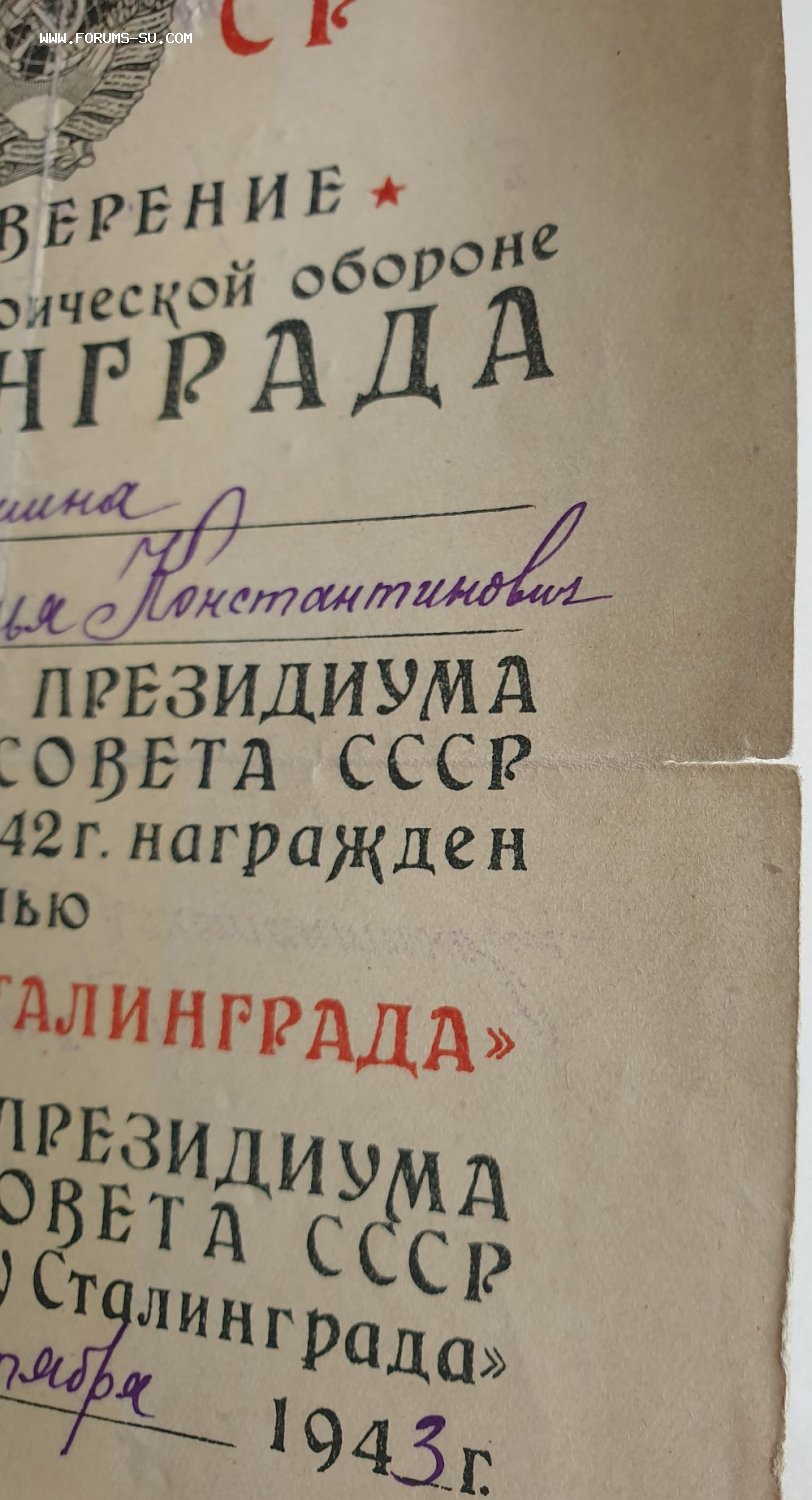 WWW.FORUMS-SU.COM
СР
ВЕРЕНИЕ ★
оической обороне
НГРАДА
шина
ья Константинович
ПРЕЗИДИУМА
СОВЕТА СССР
42 г. награжден
лью
ТАЛИНГРАДА»
ПРЕЗИДИУМА
ОВЕТА СССР
у Сталинграда»
тября 1943 г.